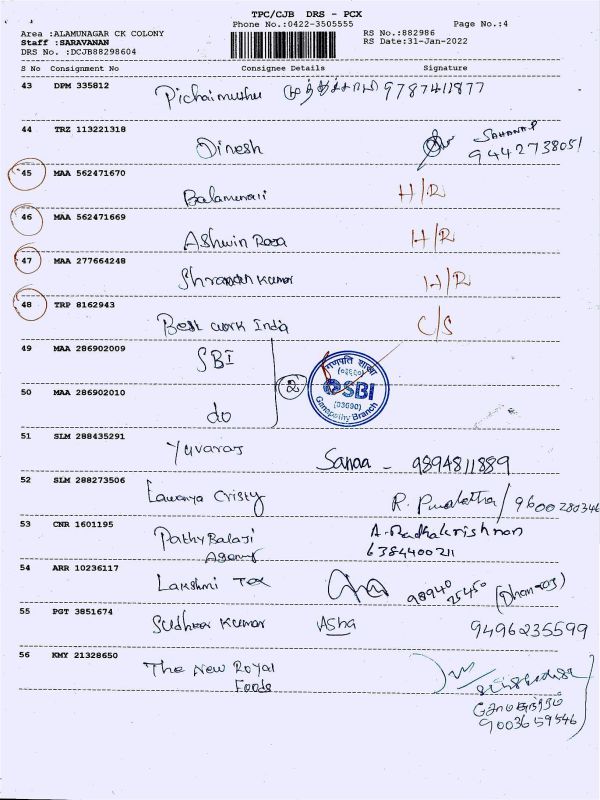 TPC/CJB DRS - PCX
Phone No.:0422-3505555 Page No.:4
Area :ALAMUNAGAR CK COLONY RS No.:882986
Staff :SARAVANAN RS Date:31-Jan-2022
DRS No. :DCJB88298604
S No Consignment No Consignee Details Signature
43 DPM 335812 Pichaimuthu 9787411877
44 TRZ 113221318 Dinesh SAHANA.P
9442738051
45 MAA 562471670 Balamurali H/R
46 MAA 562471669 Ashwin Raja H/R
47 MAA 277664248 Kumar H/R
48 TRP 8162943 Best work India C/S
49 MAA 286902009 SBI
गणपति शाखा
(०३६९०)
2 SBI
(03690)
Ganapathy Branch
50 MAA 286902010 do
51 SLM 288435291 Yuvaraj Sanaa - 9894811889
52 SLM 288273506 Lawanya Cristy R. / 9600280346
53 CNR 1601195 Pathy Balaji A. Radhakrishnan
Agency 6384400211
54 ARR 10236117 Lakshmi Tex 98940
25450 (Dhanraj)
55 PGT 3851674 Sudheer Kumar Asha 9496235599
56 KMY 21328650 The New Royal
Foods
9003659546